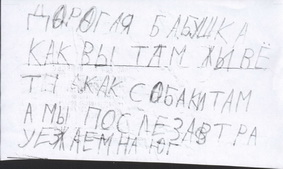 ДОРОГАЯ БАБУШКА
КАК ВЫ ТАМ ЖЫВЁ
ТЕ А КАК СОБАКИ ТАМ
А МЫ ПОСЛЕЗАВТРА
УЕЖАЕМ НА ЮГ